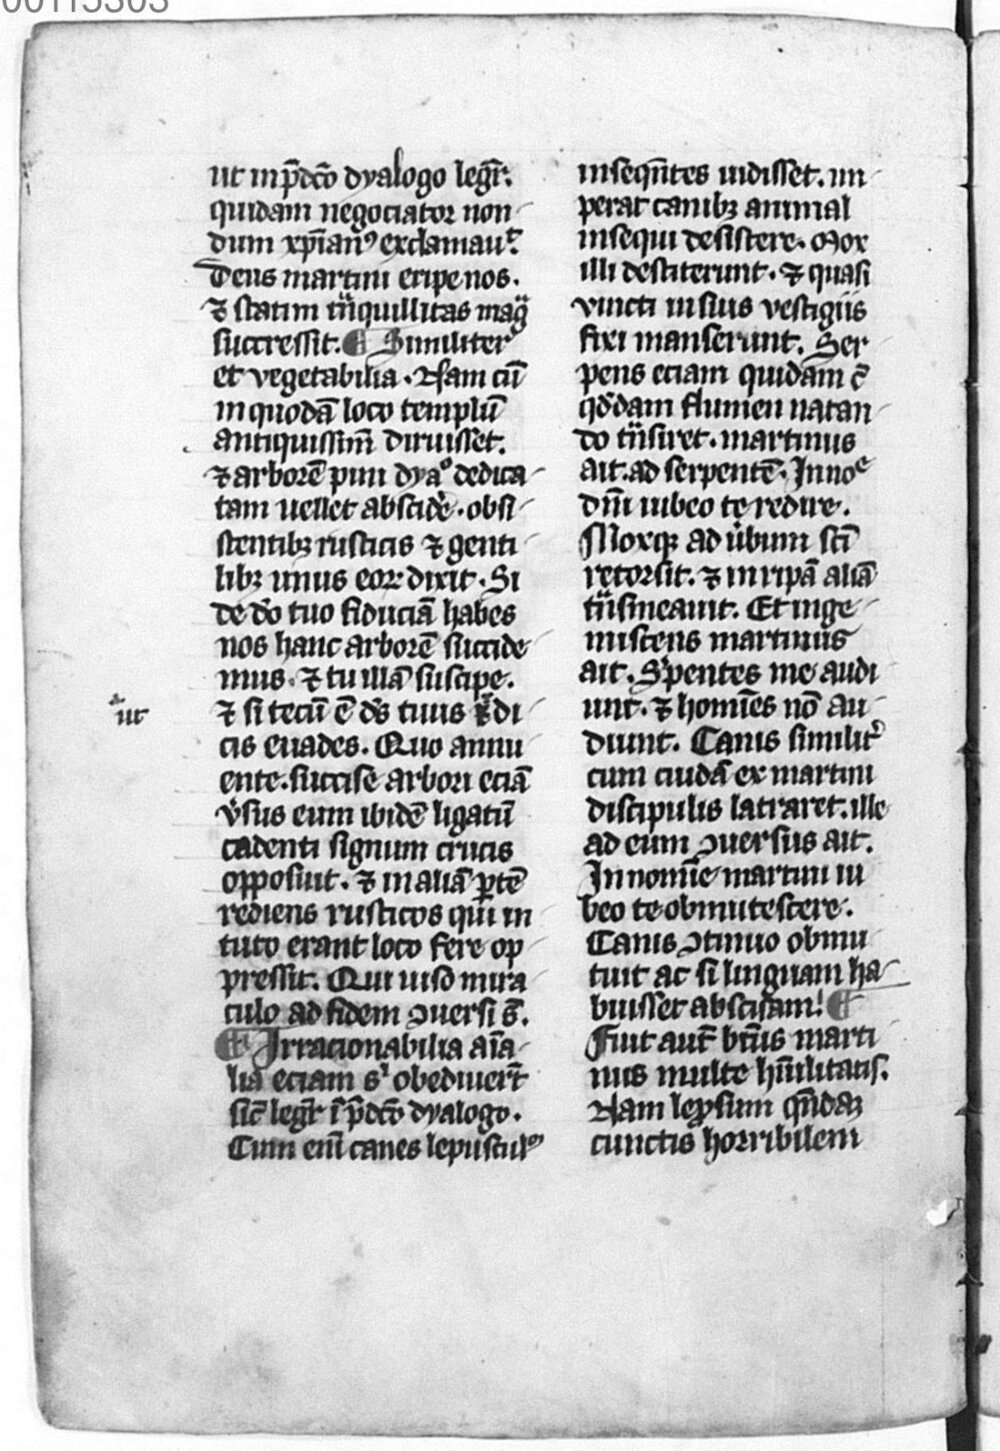 ut in p̄dc̄o dyalogo legr̄.
quidam negociator non
dum xp̄ian⁹ exclamauit.
Deus martini eripe nos.
⁊ statim tͣnquillitas magͣ
successit. ¶ Similiter
et vegetabilia. Nam cū
in quodā loco templū
antiquissim̄ diruisset.
⁊ arborē pini dyaᵒ dedica
tam uellet abscide̾. obsi
stentibꝫ rusticis ⁊ genti
libꝫ unus eoꝝ dixit. Si
de do̾ tuo fiduciā habes
nos hanc arborē succide
mus. ⁊ tu illā suscipe.
ut
⁊ si tecū ē ds̄ tuus di
cis euades. Quo annu
ente. succise arbori eciā
v̾sus eum ibidē ligatū
cadenti signum crucis
opposuit. ⁊ in aliā ꝑtē
rediens rusticos qui in
tuto erant loco fere op
pressit. Qui uiso mira
culo ad fidem ꝯuersi s̄.
¶ Irracionabilia aīa
lia eciam sͥ obediuer̄t
sic̄ legr̄ ī p̄dc̄o dyalogo.
Cum eni̅ canes lepusculo̅
inseqn̄tes uidisset. im
perat canibꝫ animal
insequi desistere. Mox
illi destiterunt. ⁊ quasi
vincti in suis vestigiis
fixi manserunt. Ser
pens eciam quidam c̄
qd̄dam flumen natan
do tͣnsiret. martinus
ait. ad serpentē. In noᵉ
dn̄i iubeo te redire.
Moxqꝫ ad u̾bum sc̄i
retorsit. ⁊ in ripā aliā
tͣnsmeauit. Et inge
miscens martinus
ait. S̾pentes me audi
unt. ⁊ homīes nō au
diunt. Canis similit̾
cum cuidā ex martini
discipulis latraret. ille
ad eum ꝯuersus ait.
In nomīe martini iu
beo te obmutescere.
Canis ꝯtinuo obmu
tuit ac si linguam ha
buisset abscisam. ¶
Fuit aut̄ bt̄us marti
nus multe hūilitatis.
Nam lep̱sum qn̄daꝫ
cunctis horribilem